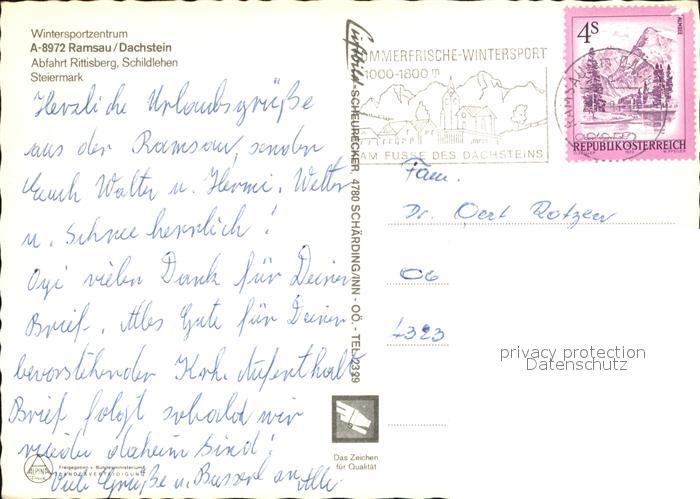 Wintersportzentrum
A-8972 Ramsau/Dachstein
Abfahrt Rittisberg, Schildlehen
Steiermark
Herzliche Urlaubsgrüße
aus der Ramsau, senden
Euch Walter u. Hermi. Wetter
u. Schnee herrlich!
vielen Dank für Deinen
Brief. Alles Gute für Deinen
bevorstehenden Krh. Aufenthalt
Brief folgt sobald wir
wieder daheim sind!
Viele Grüße u. Busserl an Alle
ALPINA
Freigegeben v. Bundesministerium f.
LANDESVERTEIDIGUNG
Luftbild-SCHEURECKER, 4780 SCHÄRDING/INN - OÖ. - TEL. 2329
Das Zeichen
für Qualität
SOMMERFRISCHE-WINTERSPORT
1000-1800 m
AM FUSSE DES DACHSTEINS
RAMSAU
4S
ALMSEE
REPUBLIK ÖSTERREICH
Fam.
Dr.
4323
privacy protection
Datenschutz